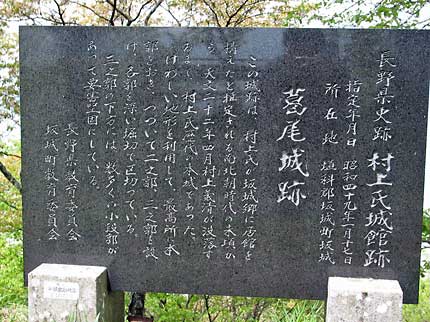 長野県史跡 村上氏城館跡
指定年月日 昭和四十九年一月十七日
所在地 埴科郡坂城町坂城
葛尾城跡
この城跡は、村上氏が坂城郷に居館を
構えたと推定される南北朝時代の末頃か
ら、天文二十二年四月村上義清の没落す
るまで、村上氏歴代の本城であった。
けわしい地形を利用して、最高所に本
郭をおき、つづいて二之郭、三之郭と設
け、各郭を深い堀切で区切っている。
三之郭の下方には、数多くの小段郭が
あって要害堅固にしている。
長野県教育委員会
坂城町教育委員会